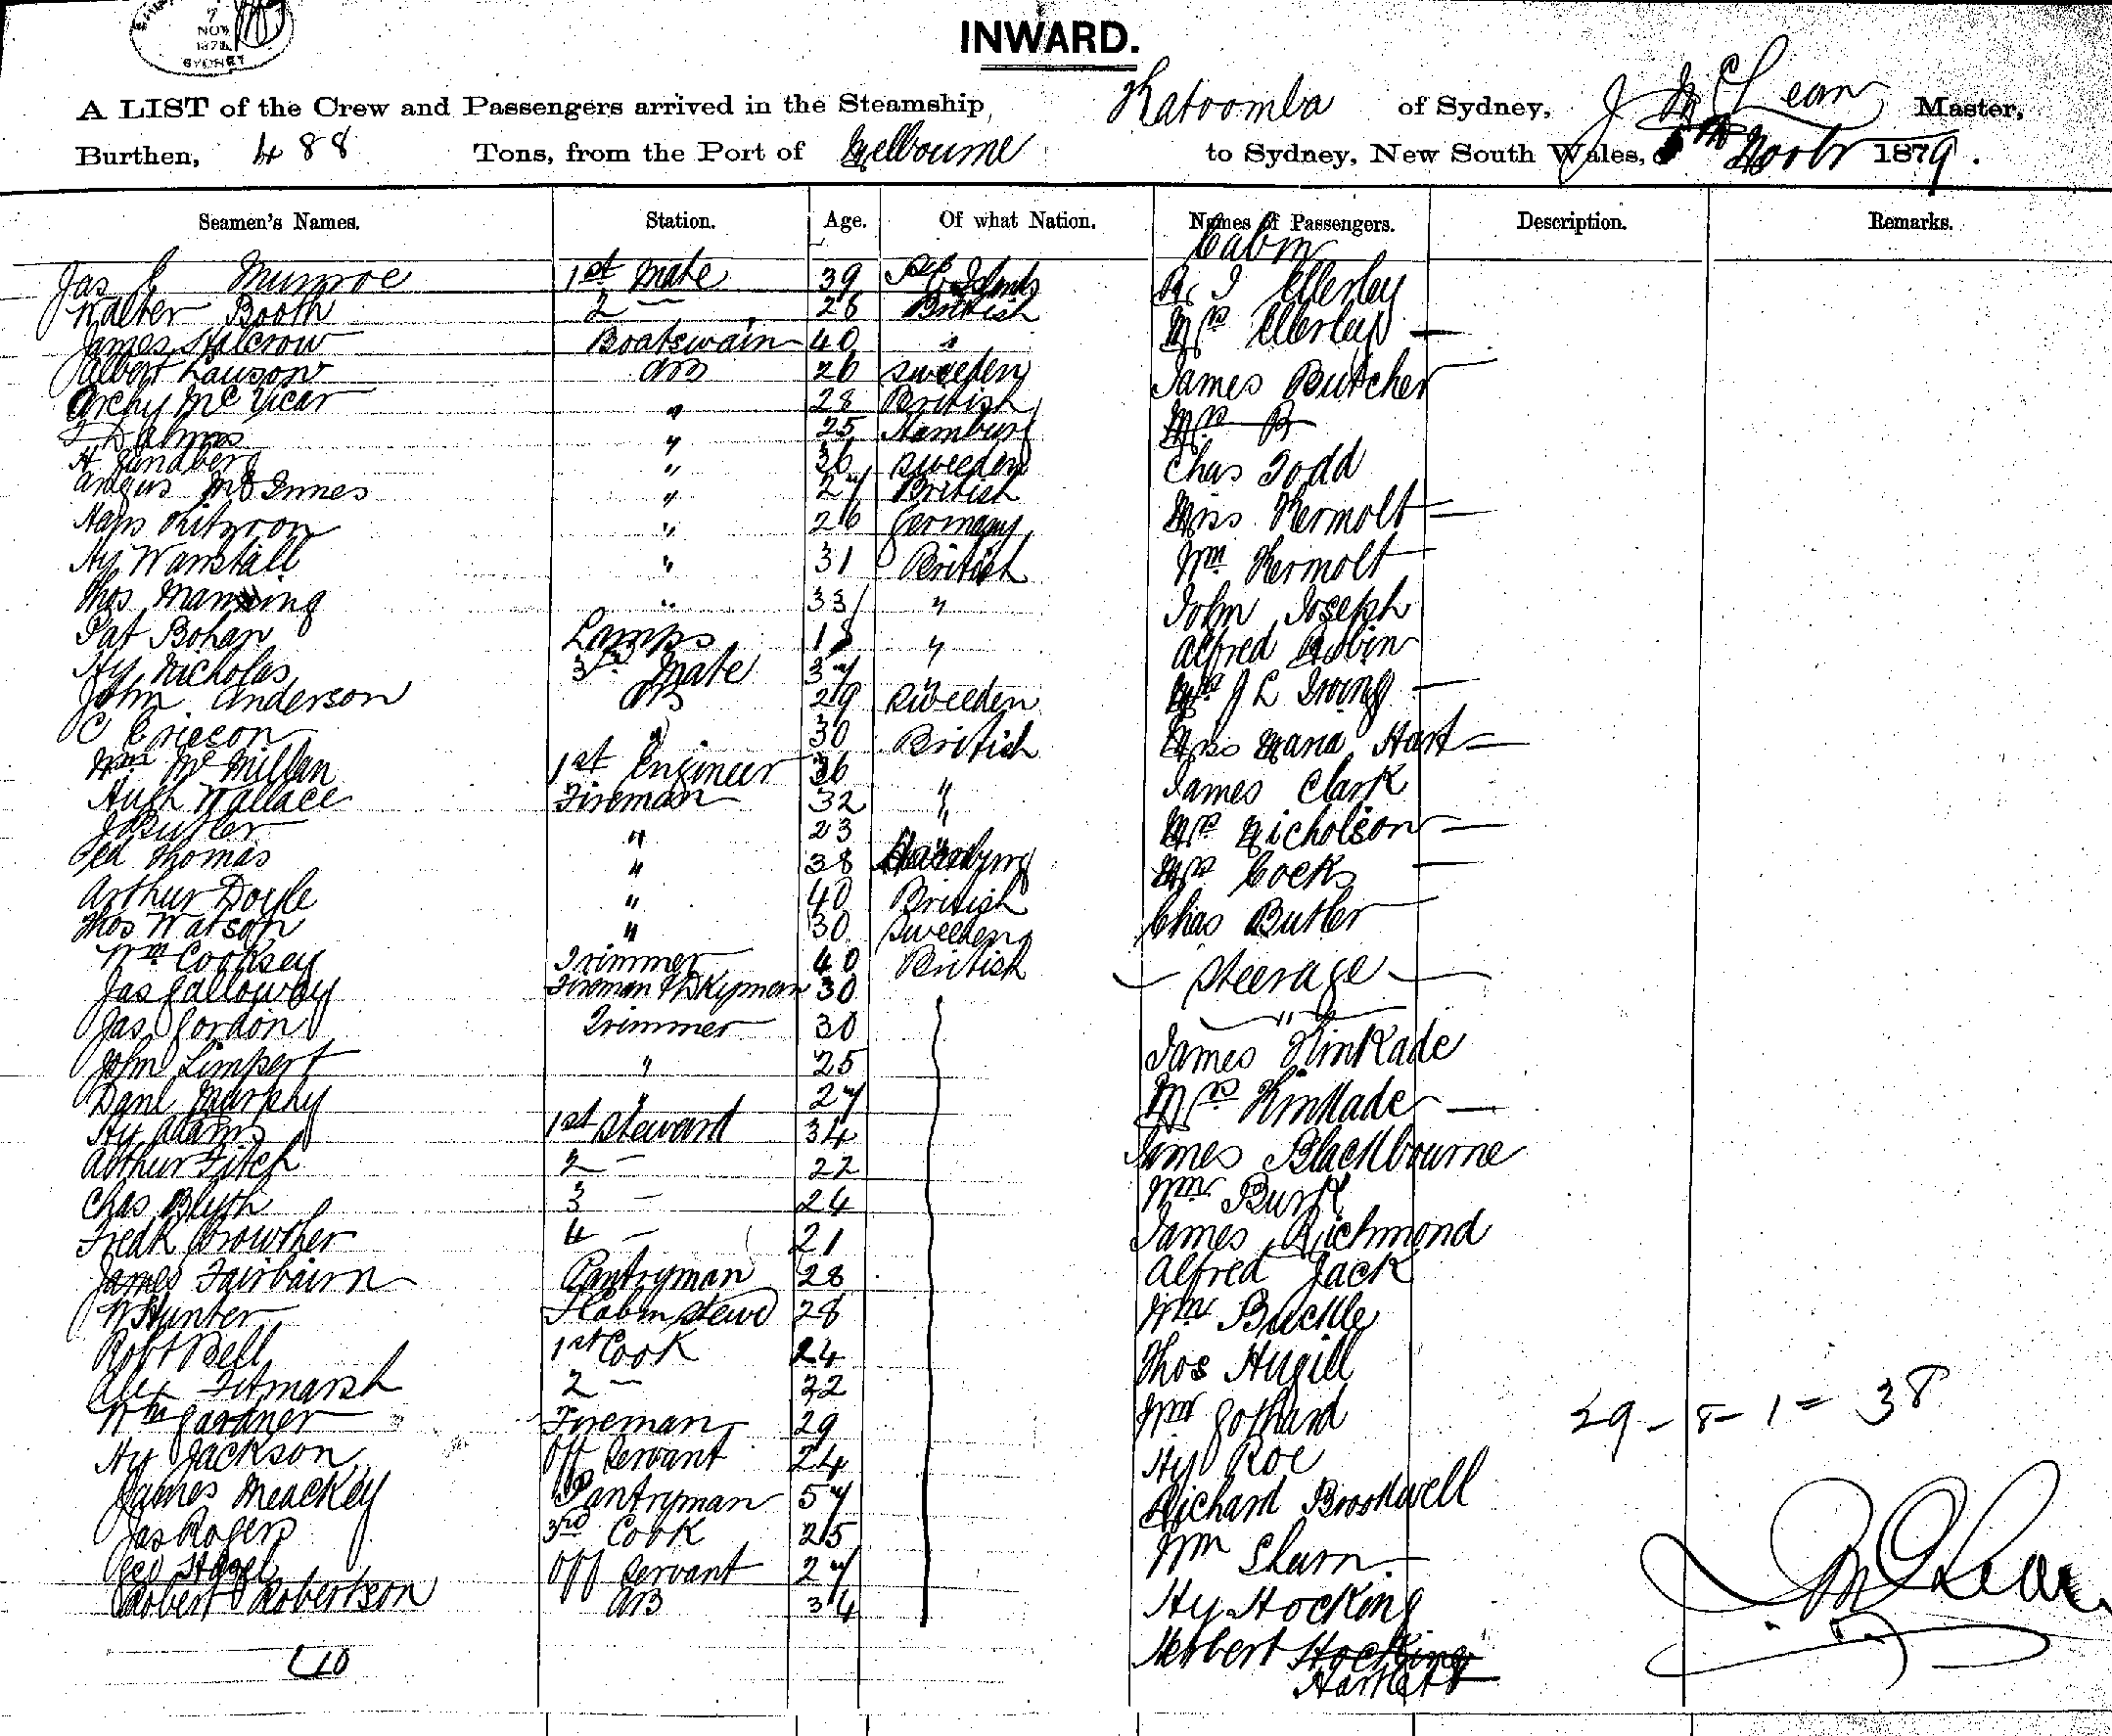 7
NOV
187
SYDNEY
INWARD.
A LIST of the Crew and Passengers arrived in the Steamship, Katoomba of Sydney, J McLean Master,
Burthen, 488 Tons, from the Port of Melbourne to Sydney, New South Wales, 5th Novbr 1879.
Seamen's Names. Station. Age. Of what Nation. Names of Passengers. Description. Remarks.
Cabin
Jas Munroe 1st Mate 39 Islands R J Ellerley
Walter Booth 2 — 28 British Mrs Ellerley —
James Halcrow Boatswain 40 "
Albert Lawson AB 26 Sweeden James Butcher
Archy McVicar " 28 British
" 25 Hamburg Mrs B
H Sundberg " 36 Sweeden Chas Todd
Angus McInnes " 27 British
Hans " 26 Germany Mrs Kermolt —
Hy Wanstall " 31 British Wm Kermolt
Thos Manning " 33 " John Joseph
Pat Bohan Lamps 18 " Alfred Robin
Hy Nicholas 3rd Mate 37 "
John Anderson AB 29 Sweeden Mrs J L Irving —
C Ericson " 30 British Mrs Maria Hart —
Wm McMillan 1st Engineer 36
Hugh Wallace Fireman 32 " James Clark
J Butler " 23 " Mrs Nicholson —
Ted Thomas " 38 Hamburg Mrs Cocks —
Arthur Doyle " 40 British Chas Butler
Thos Watson " 30 Sweeden
Wm Cooksey Trimmer 40 British — Steerage —
Jas Galloway Fireman & Dkyman 30
Jas Gordon Trimmer 30 "
John Limpert " 25 James Kinkade
Danl Murphy " 27 Mrs Kinkade —
Hy Adams 1st Steward 34
Arthur Fitch 2 — 22 James Blackbourne
Chas Blyth 3 — 24 Wm Burk
Fredk Crowther 4 — 21 James Richmond
James Fairbairn Pantryman 28 Alfred Jack
W Hunter F Cabin Stewd 28 Wm Buckle
Robt Bell 1st Cook 24 Thos Hugill
Alex Titmarsh 2 — 22
Wm Gardner Fireman 29 Wm Gothard 29 - 8 - 1 = 38
Hy Jackson Off Servant 24 Hy Roe
James Meackey Pantryman 57 Richard Brookwell
Jas Rogers 3rd Cook 25 Wm Sharn
Geo Off Servant 27
Robert Robertson AB 34 Hy Hocking
Herbert Hocking
40 Hartlett
J McLean